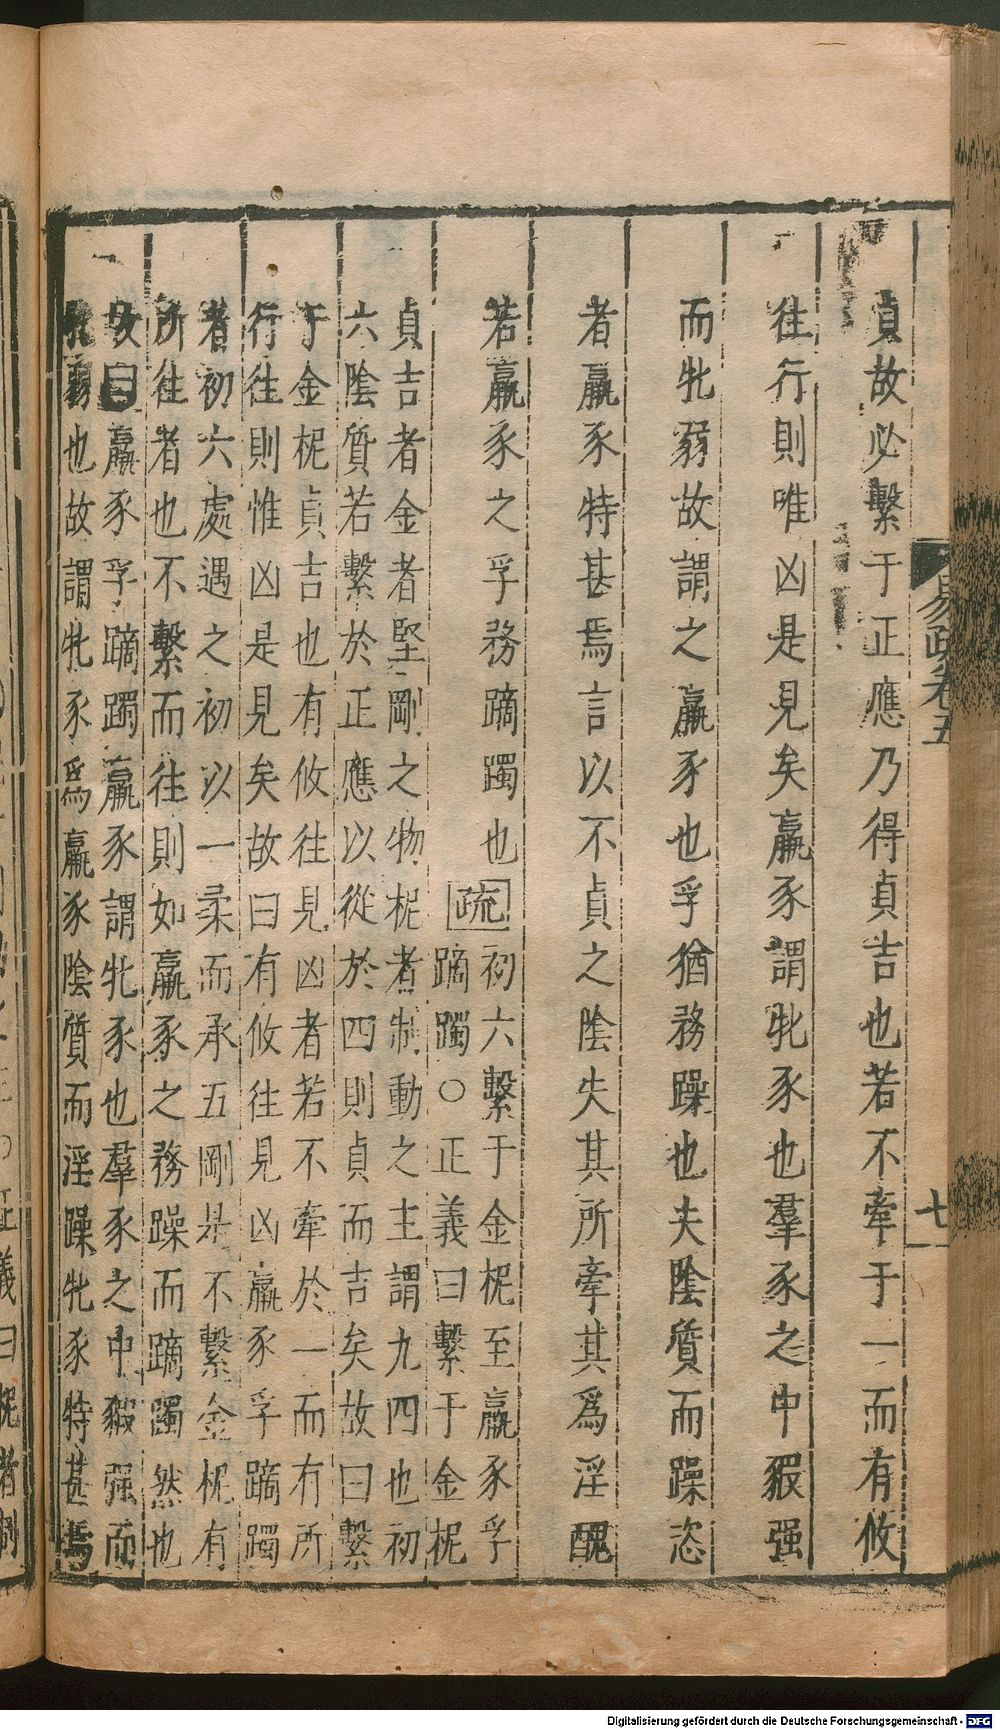 易疏卷五
七
貞故必繫于正應乃得貞吉也若不牽于一而有攸
往行則唯凶是見矣羸豕謂牝豕也羣豕之中豭强
而牝弱故謂之羸豕也孚猶務躁也夫陰質而躁恣
者羸豕特甚焉言以不貞之陰失其所牽其爲淫醜
若羸豕之孚務蹢躅也疏
初六繫于金柅至羸豕孚
蹢躅○正義曰繫于金柅
貞吉者金者堅剛之物柅者制動之主謂九四也初
六陰質若繫於正應以從於四則貞而吉矣故曰繫
于金柅貞吉也有攸往見凶者若不牽於一而有所
行往則惟凶是見矣故曰有攸往見凶羸豕孚蹢躅
者初六處遇之初以一柔而承五剛是不繫金柅有
所往者也不繫而往則如羸豕之務躁而蹢躅然也
故曰羸豕孚蹢躅羸豕謂牝豕也羣豕之中豭强而
牝弱也故謂牝豕爲羸豕陰質而淫躁牝豕特甚焉
正義曰柅者制
Digitalisierung gefördert durch die Deutsche Forschungsgemeinschaft - DFG